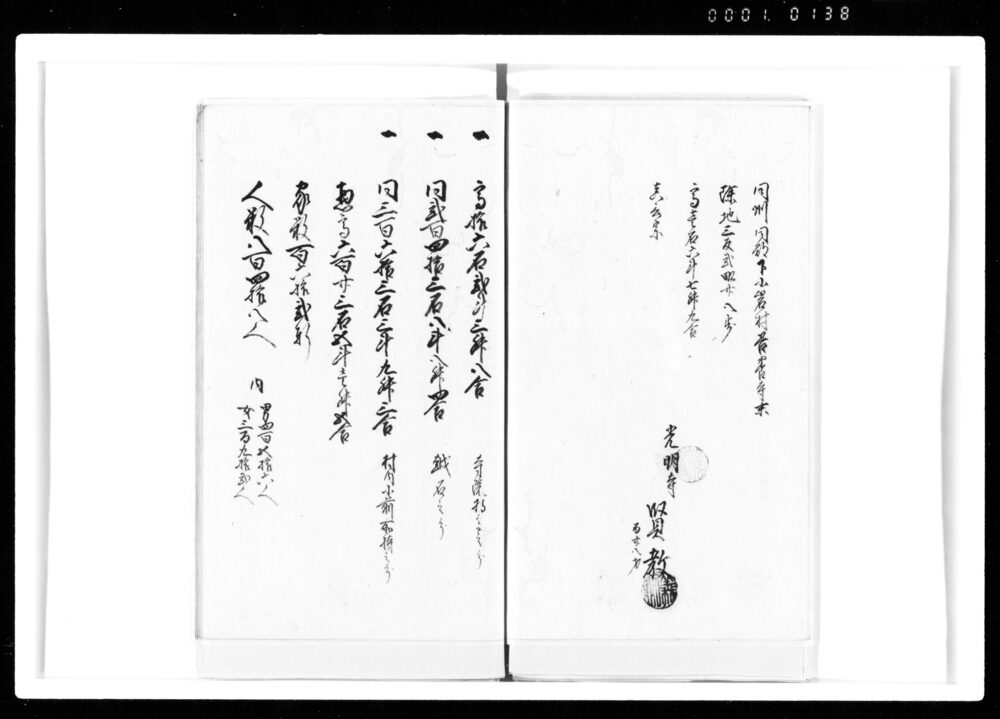 0001.0138
同州同郡下小岩村善養寺末
除地三反弐畝廿八歩
高壱石六斗七升九合
真言宗
光明寺
賢教
一 高拾六石弐斗三升八合
一 同弐百四拾三石八斗八升四合 越石之分
一 同三百六拾三石三斗九升三合 村内小前所持之分
惣高六百廿三石五斗壱升五合
家数百六拾弐軒
人数八百四拾八人 内
男四百五拾六人
女三百九拾弐人